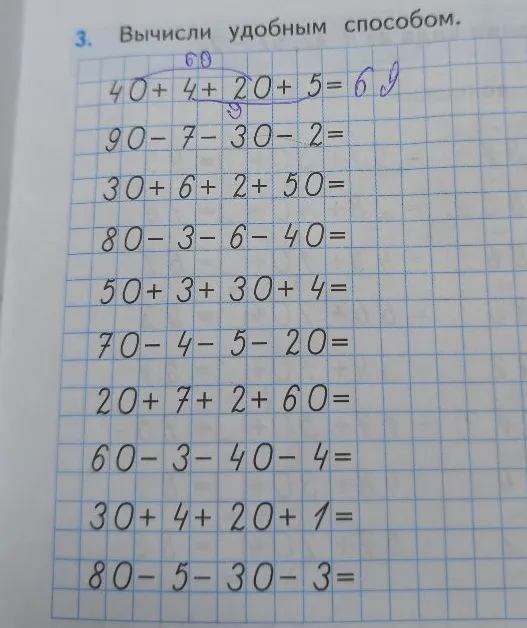 3. Вычисли удобным способом.
60
40+ 4+ 20+ 5= 69
9
90- 7- 30- 2=
30+ 6+ 2+ 50=
80- 3- 6- 40=
50+ 3+ 30+ 4=
70- 4- 5- 20=
20+ 7+ 2+ 60=
60- 3- 40- 4=
30+ 4+ 20+ 1=
80- 5- 30- 3=